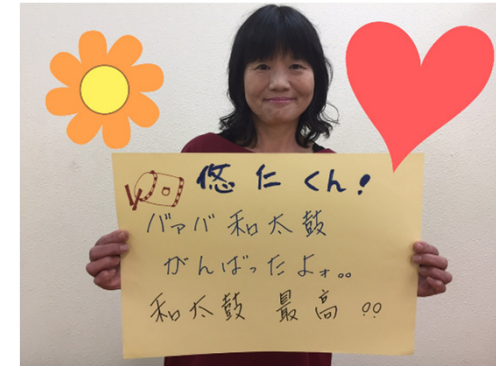 悠仁くん!
バァバ和太鼓
がんばったよォ。。
和太鼓 最高!!